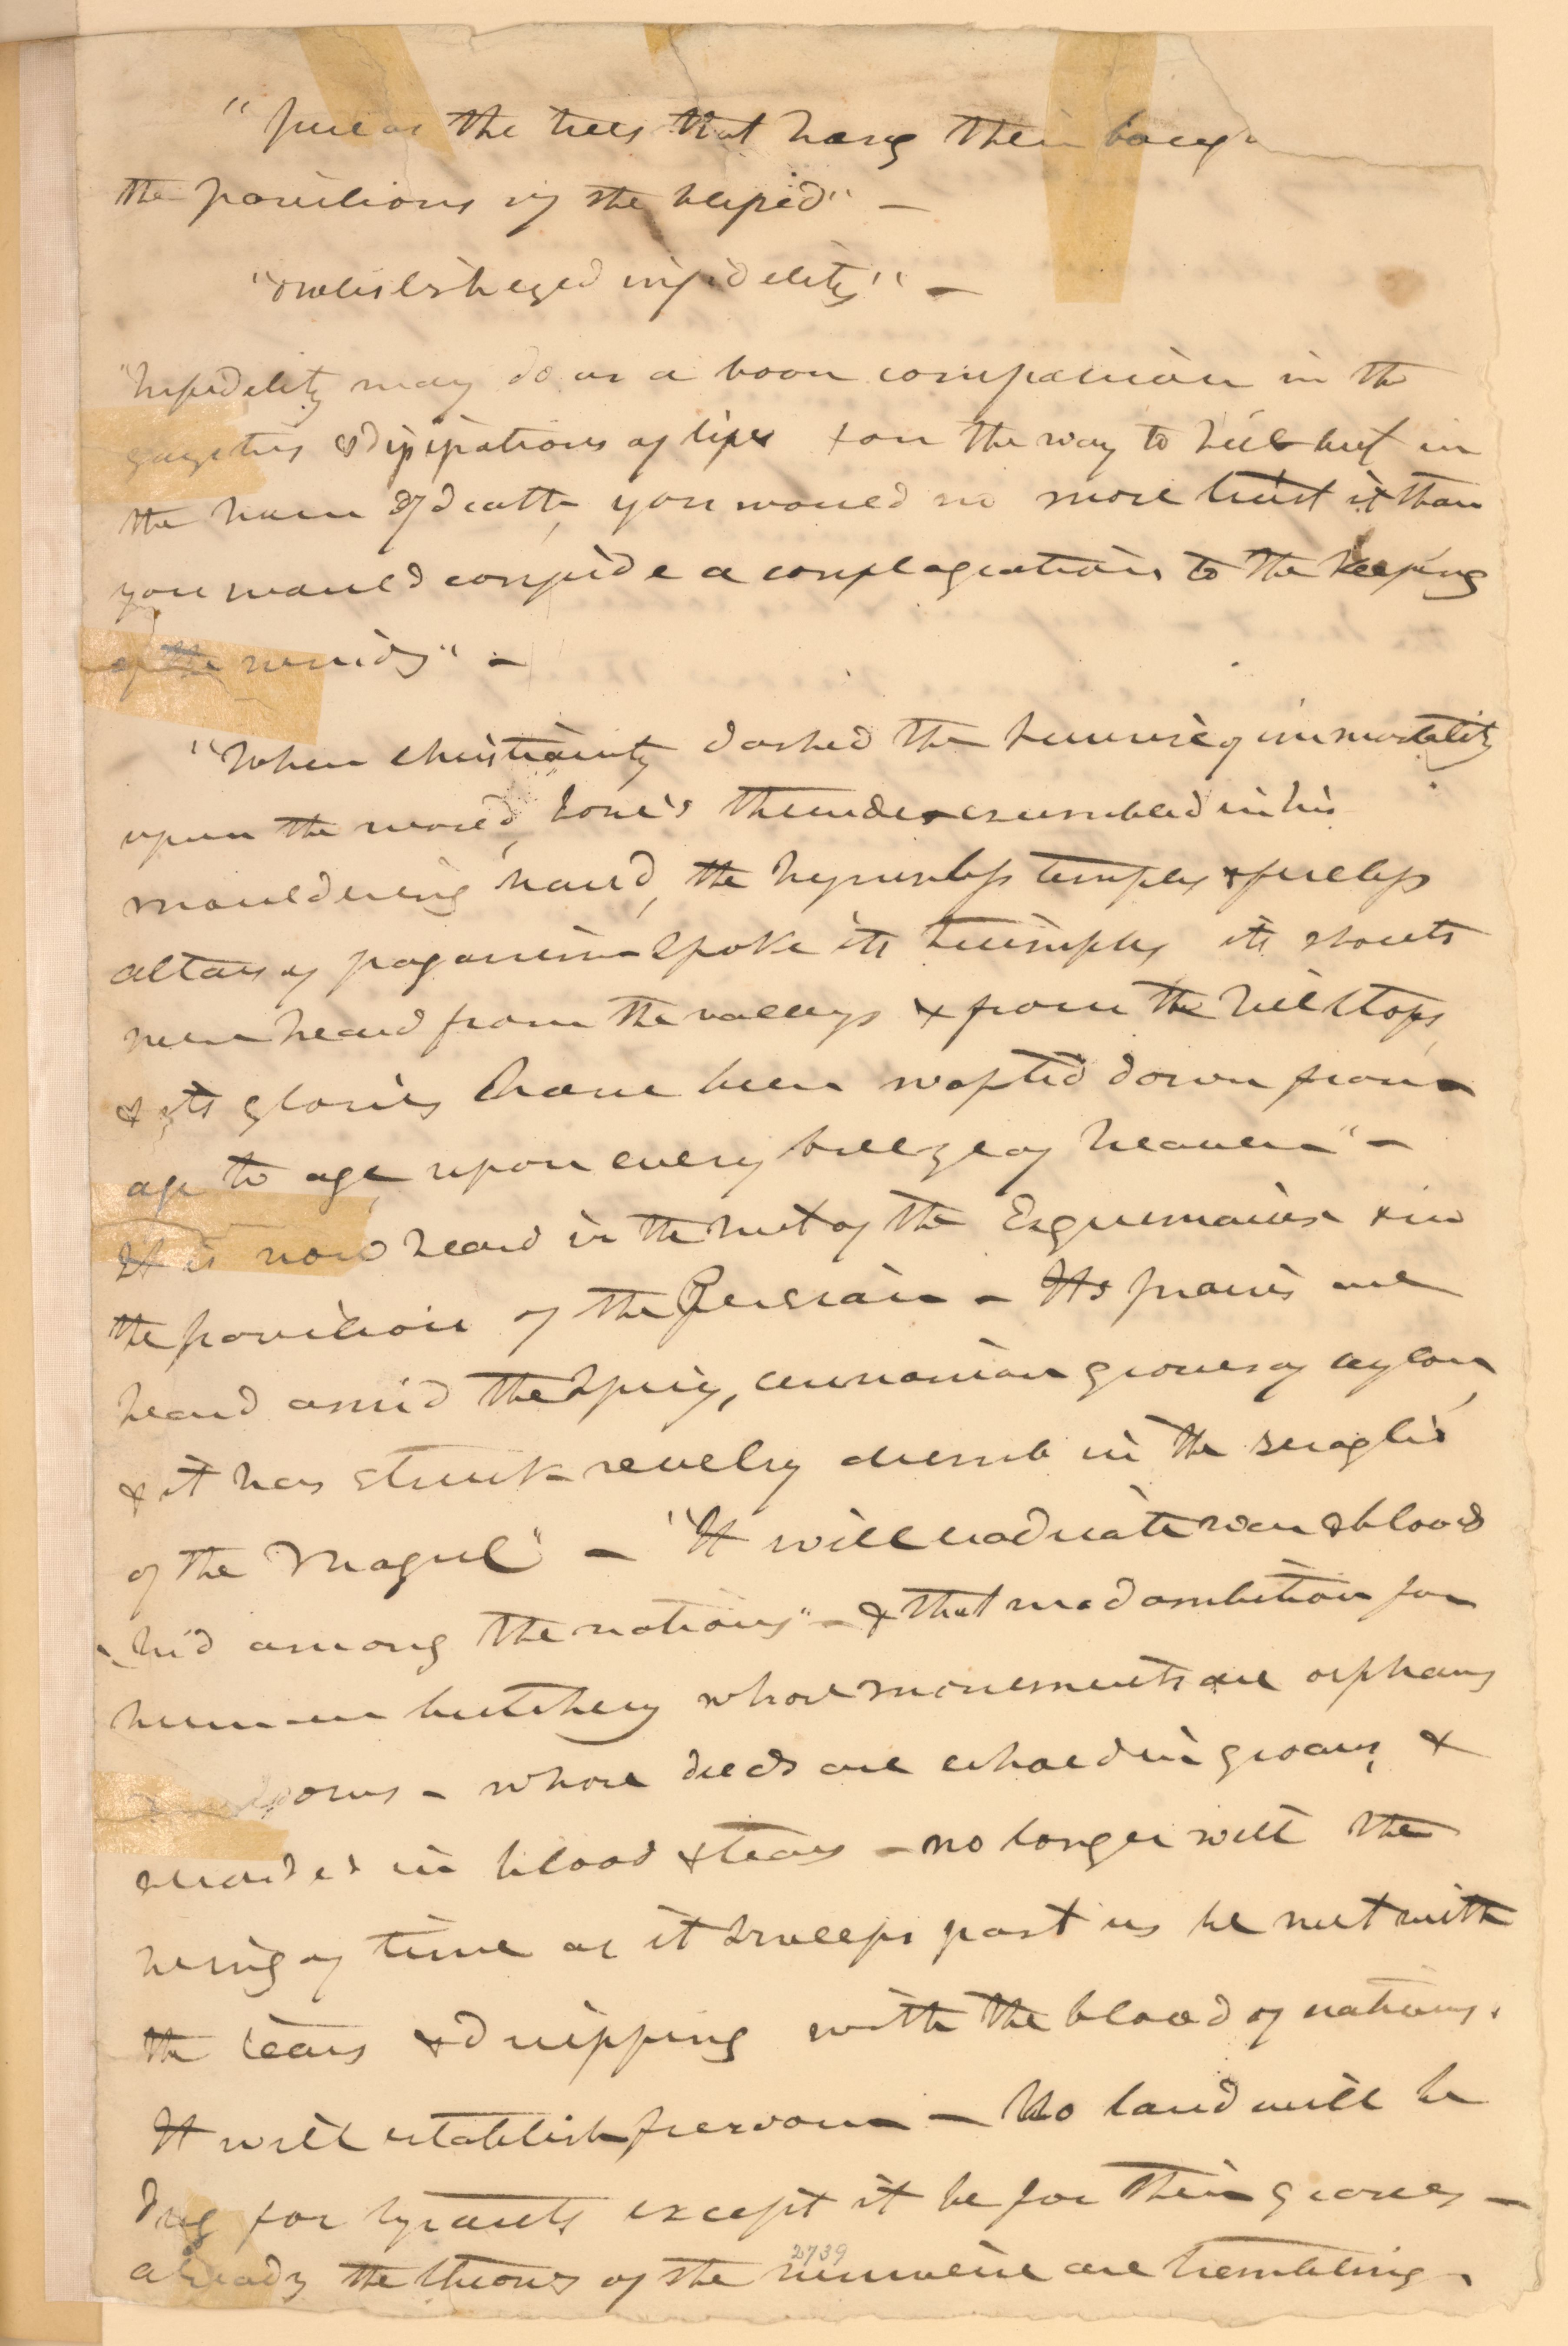 "pure as the trees that hang their
the pavilions of the blessed" —
infidelity" —
"Infidelity may do as a boon companion in the
gayeties & dissipations of life & on the way to hell but in
the hour of death, you would no more trust it than
you would confide a conflagration to the keeping
of the winds" —
"When christianity dashed the sunrise of immortality
upon the world, Jove's thunder crumbled in his
mouldering hand, the hymnless temples & fireless
altars of paganism spoke its triumphs its shouts
were heard from the valleys & from the hill tops,
& its glories have been wafted down from
age to age upon every breeze of heaven" —
It is now heard in the hut of the Esquimaux & in
the pavilion of the Persian — Its praises are
heard amid the spicy, cinnamon groves of ceylon,
& it has struck revelry dumb in the seraglio
of the Mogul" — "It will eradicate war & blood
shed among the nations" — & that mad ambition for
human butchery whose monuments are orphans
— whose deeds are echoed in groans, &
recorded in blood & tears — no longer will the
wing of time as it sweeps past us be wet with
the tears & dripping with the blood of nations.
It will establish freedom — No land will be
dug for tyrants except it be for their graves —
already the thrones of the universe are trembling —
2739